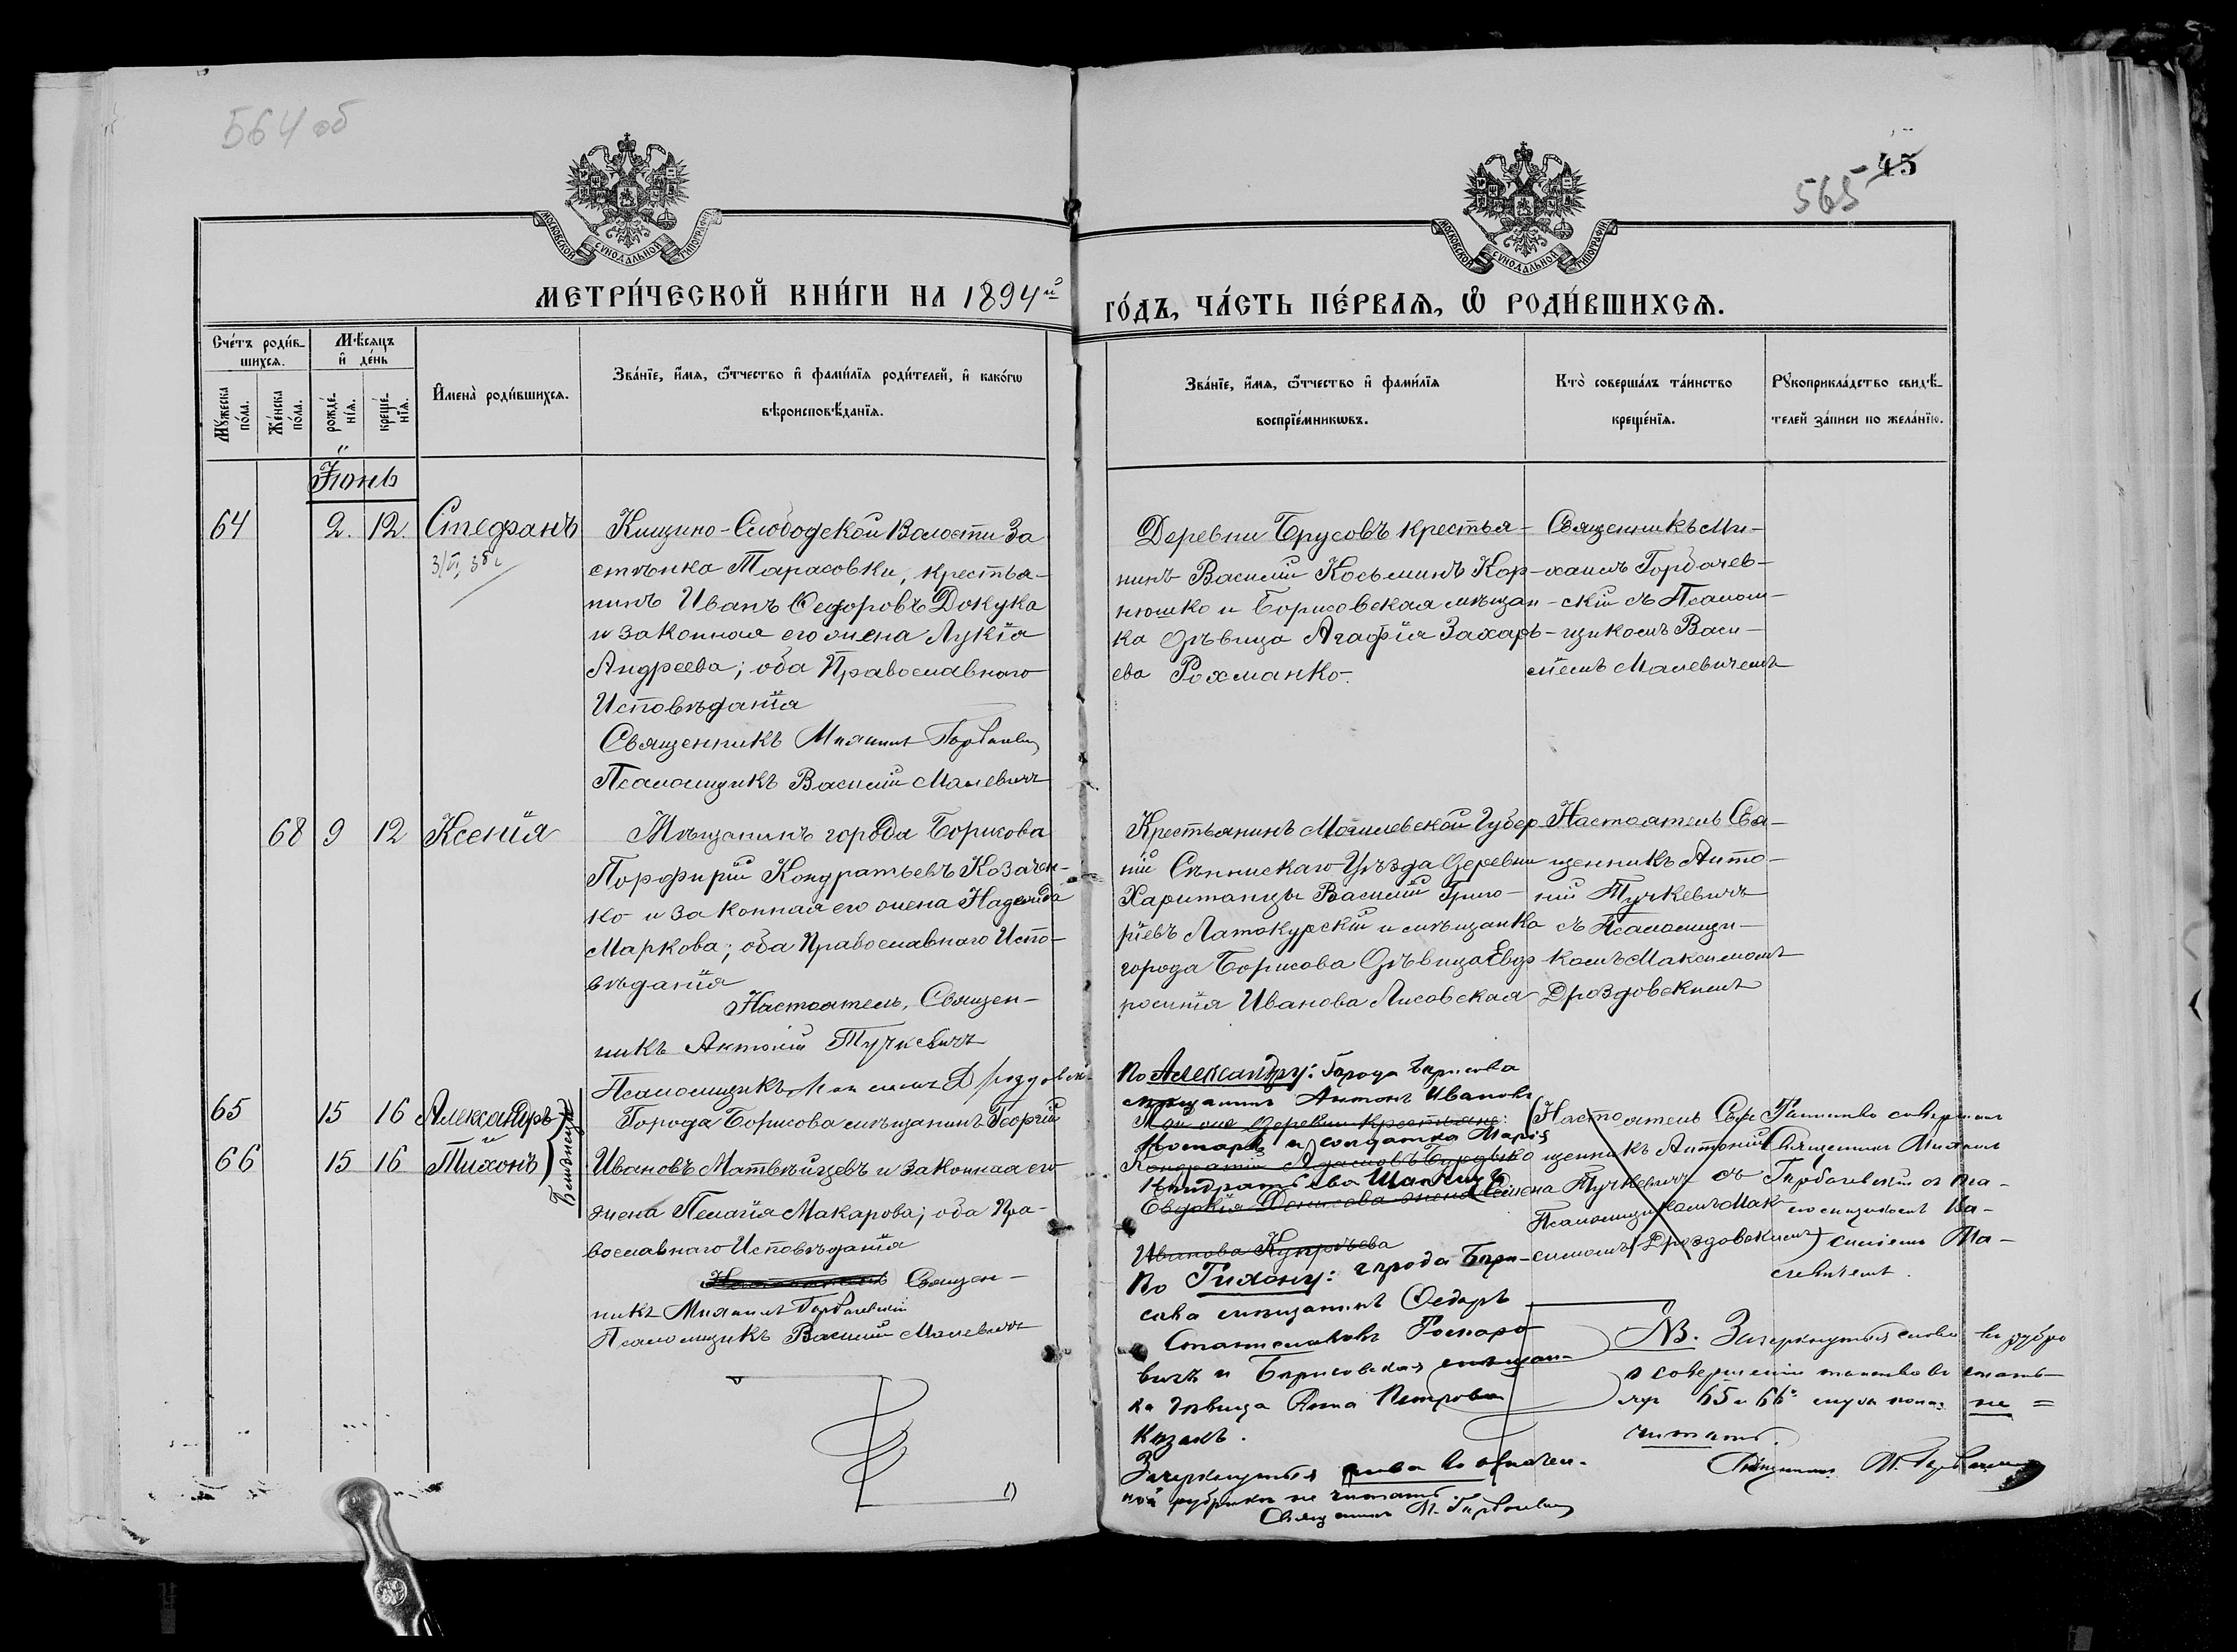 564 об
565
45
МОСКОВСКОЙ СѴНОДАЛЬНОЙ ТИПОГРАФІИ
МОСКОВСКОЙ СѴНОДАЛЬНОЙ ТИПОГРАФІИ
МЕТРИ́ЧЕСКОЙ КНИ́ГИ НА 1894й
ГО́ДЪ, ЧА́СТЬ ПЕ́РВАѦ, Ѿ РОДИ́ВШИХСѦ.
Сче́тъ роди́в-
шихсѧ.
Мѣ́сѧцъ
и҆ де́нь
Мꙋ́жеска по́ла.
Же́нска по́ла.
рожде́-
нїѧ.
креще́-
нїѧ.
И҆мена̀ роди́вшихсѧ.
Зва́нїе, и҆́мѧ, ѻ҆́тчество и҆ фами́лїѧ роди́телей, и҆ како́гѡ
вѣроисповѣ́данїѧ.
Зва́нїе, и҆́мѧ, ѻ҆́тчество и҆ фами́лїѧ
воспрїе́мникѡвъ.
Кто̀ соверша́лъ та́инство
креще́нїѧ.
Рꙋкоприкла́дство свидѣ́-
телей за́писи по жела́нїю.
Іюнь
64 2. 12. Стефанъ
Клищино-Слободской Волости За
стѣнка Тарасовки, крестья-
нинъ Иванъ Ѳедоровъ Докука
и законная его жена Лукія
Андреева; оба Православнаго
Исповѣданія
Священникъ Михаилъ Горбачевскій
Псаломщикъ Василій Малевичъ
Деревни Брусовъ крестья-
нинъ Василій Косьминъ Кор-
нюшко и Борисовская мѣщан-
ка дѣвица Агафія Захарь-
ева Рохманко.
Священникъ Ми-
хаилъ Горбачев-
скій съ Псалом-
щикомъ Васи-
ліемъ Малевичемъ
68 9 12 Ксенія
Мѣщанинъ города Борисова
Порфирій Кондратьевъ Козачен-
ко и законная его жена Надежда
Маркова; оба Православнаго Испо-
вѣданія
Настоятель, Священ-
никъ Антоній Тучкевичъ
Псаломщикъ Максимъ Дроздовск-
Крестьянинъ Могилевской Губер
ніи Сѣннскаго Уѣзда деревни
Харитонцы Василій Григо-
ріевъ Латокурскій и мѣщанка
города Борисова дѣвица Евф
росинія Иванова Лисовская
Настоятель Свя-
щенникъ Анто-
ній Тучкевичъ
съ Псаломщи-
комъ Максимомъ
Дроздовскимъ
65 15 16 Александръ
66 15 16 Тихонъ
Близнецы
Города Борисова мѣщанинъ Георгій
Ивановъ Матвѣйцевъ и законная его
жена Пелагія Макарова; оба Пра-
вославнаго Исповѣданія
Настоятель Священ-
никъ Михаилъ Горбачевскій
Псаломщикъ Василій Малевичъ
По Александру: Города Борисова
мѣщанинъ Антонъ Ивановъ
деревни крестьяне:
и солдатка Марія
Кондратій Адамовъ Бурдыко
Кондратьева
Евдокія Денисова жена Семена
Иванова Купрѣева
По Тихону: города Бори-
сова мѣщанинъ Ѳедоръ
Станиславовъ Госпоро-
вичъ и Борисовская мѣщан-
ка дѣвица Анна Петрова
Козакъ.
Зачеркнутыя слова въ означен-
ной рубрикѣ не читать
Священникъ М. Горбачевскій
Настоятель Свя
щенникъ Антоній
Тучкевичъ съ
Псаломщикомъ Мак
симомъ Дроздовскимъ
Таинство совершалъ
Священникъ Михаилъ
Горбачевскій съ Пса-
ломщикомъ Ва-
силіемъ Ма-
левичемъ.
NB. Зачеркнутыя слова въ рубрѣ
о совершеніи таинства въ статѣ-
яхъ 65 и 66й муж. пола не =
читать.
Священникъ М. Горбачевскій